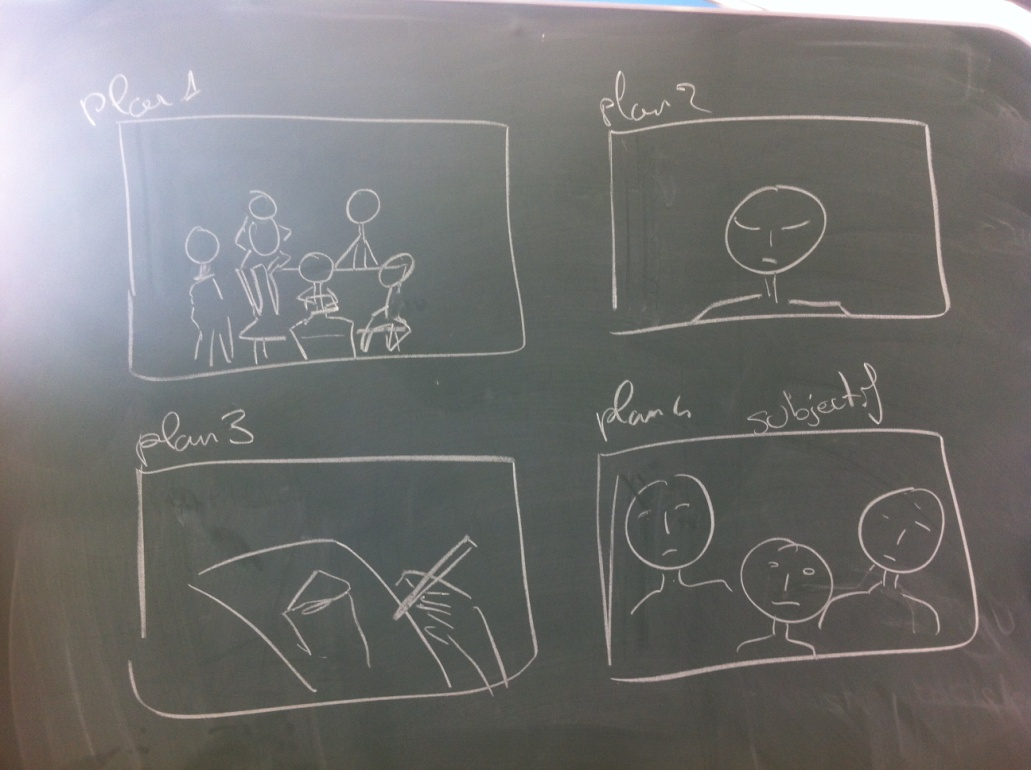 plan 1
plan 2
plan 3
plan 4 subjectif